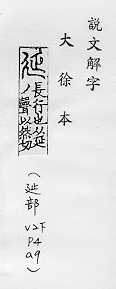 説文解字
大徐本
延
長行也从㢟
丿聲以然切
(㢟部
V2下
P4
a9)